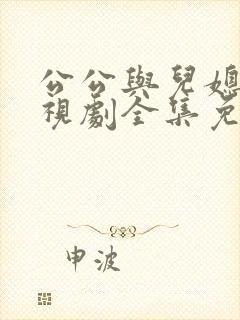 公公與兒媳
視劇全集免
申波